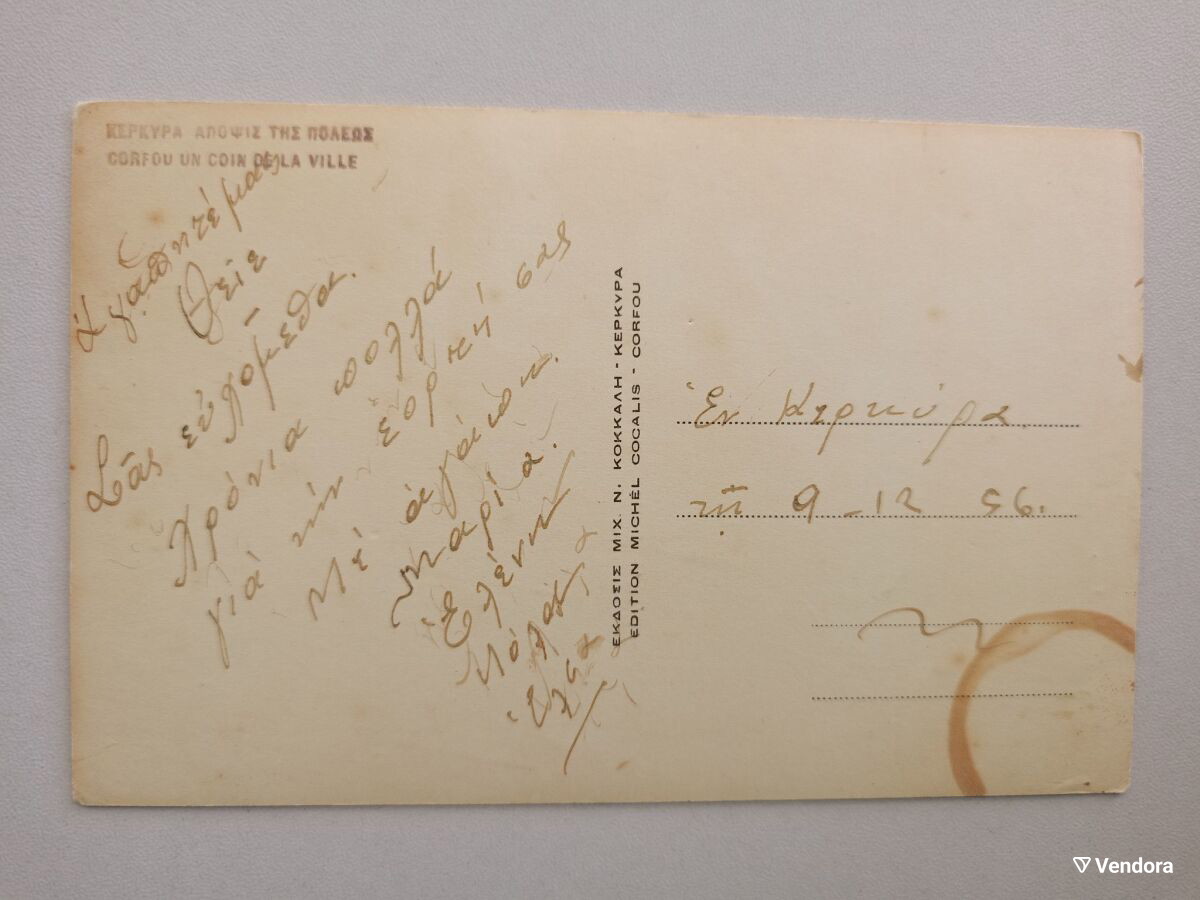 ΚΕΡΚΥΡΑ ΑΠΟΨΙΣ ΤΗΣ ΠΟΛΕΩΣ
CORFOU UN COIN DE LA VILLE
Ἀγαπητέ μας
Θεῖε
Σᾶς εὐχόμεθα.
Χρόνια πολλά
γιά τήν ἑορτή σας
Μέ ἀγάπη.
Μαρία.
Ἑλένη
ΕΚΔΟΣΙΣ ΜΙΧ. Ν. ΚΟΚΚΑΛΗ - ΚΕΡΚΥΡΑ
EDITION MICHÉL COCALIS - CORFOU
Ἐν Κερκύρα
τῇ 9-12 56.
Vendora